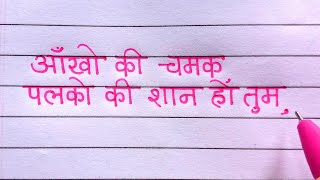 आँखो की चमक
पलको की शान हो तुम,